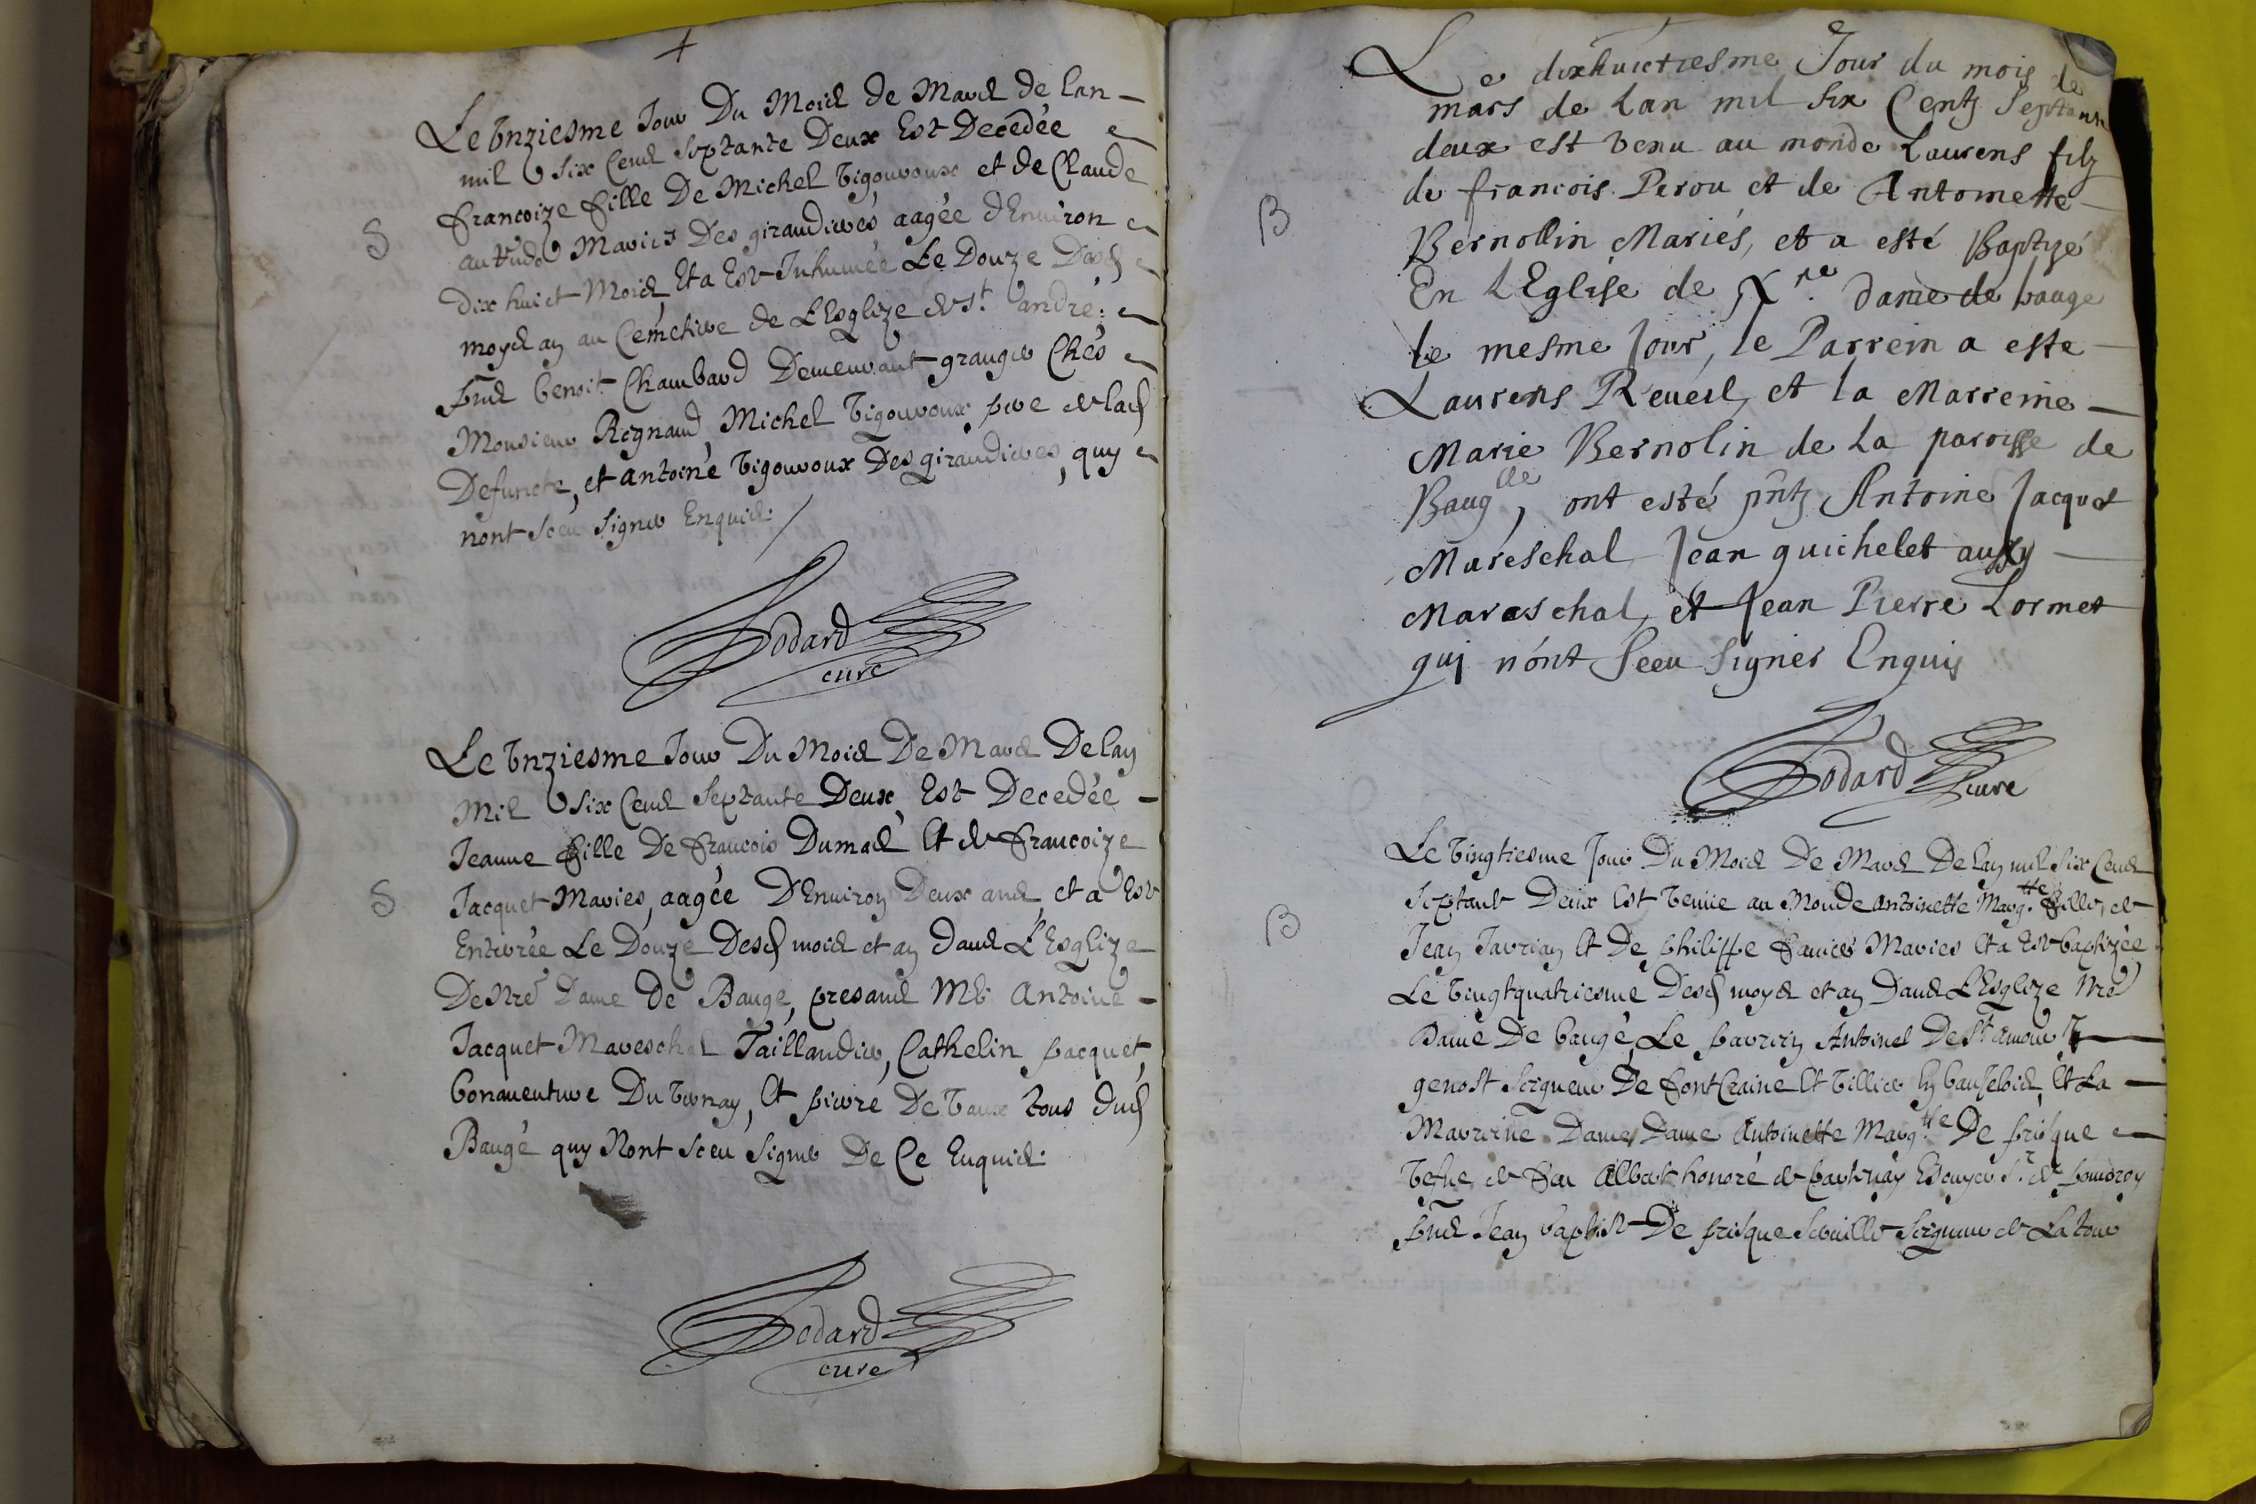 Le Unziesme Jour Du Mois de Mars de Lan
mil Six Cens Septante Deux Est Decedée
Francoize Fille De Michel Vigouroux et de Claude
Mariés Des giraudieres aagée dEnviron
Dix huict Mois Et a Esté Inhumée Le Douze Desd
moys an au Cemetiere de LEsglize de St. andré:
pns benoit Chambard Demeurant granger Chés
Monsieur Regnaud, Michel Vigouroux pere de lad
Defuncte, et antoine Vigouroux Des giraudieres, quy
nont sceu signer Enquis.
Godard
curé
S
Le Unziesme Jour Du Mois De Mars De lan
Mil Six Cens Septante Deux Est Decedée
Jeanne Fille De Francois Dumas Et de Francoize
Jacquet Maries, aagée DEnviron Deux ans et a Esté
Enterée Le Douze Desd mois et an Dans L'Esglize
De Nre Dame De Baugé, presans Me Antoine
Jacquet Mareschal Taillandier, Cathelin Jacquet,
bonaventure Du Tournay, Et pierre De Vaux tous dud
Baugé quy Nont sceu Signer De Ce Enquis.
S
Godard
curé
Le dixhuictiesme Jour du mois de
mars de Lan mil six Centz Septante
deux est venu au monde Laurens filz
de francois Perou et de Antoinette
Bernollin Mariés, et a esté Baptizé
En LEglise de Nre dame de bauge
le mesme jour, le Parrein a esté
Laurens Reveil, et la Marreine
Marie Bernolin de La paroisse de
Baugelle, ont esté pntz Antoine Jacquet
Mareschal Jean guichelet aussy
Mareschal, et Jean Pierre Lormet
qui nónt Sceu Signer Enquis
B
Godard
curé
Le Vingtiesme Jour Du Mois De Mars De lan mil Six Cens
Septante Deux Est Venue au Monde Antoinette Margtte Fille de
Jean Javrian Et De philippe Mariés Et a Esté baptizée
Le Vingtquatriesme Desd moys et an Dans LEsglize Nre
Dame De baugé, Le parrein Antoine De St amour
genost Seigneur De FontCraine Et Villier En bauselois, Et La
Marreine Dame Dame Antoinette Margtte De prisque
Vefve de Feu Albert honoré de Escuyer Sr. de
pns Jean baptiste De prisque Seigneur de La tour
B